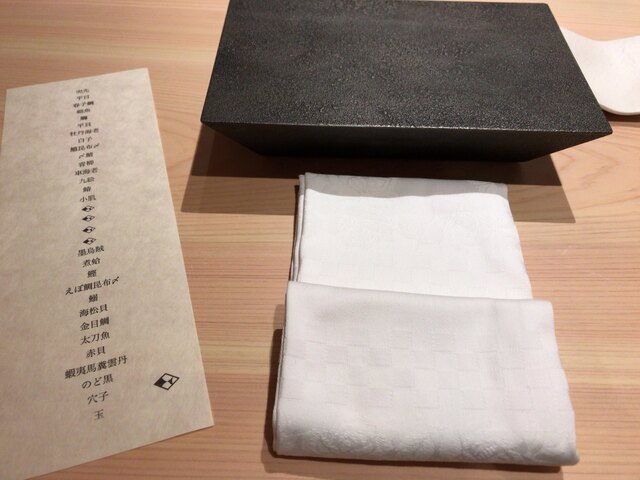 平目
春子鯛
鯛
平貝
牡丹海老
白子
〆鯖
青柳
車海老
九絵
鰆
小肌
墨烏賊
煮蛤
鰹
えぼ鯛昆布〆
鰯
海松貝
金目鯛
太刀魚
赤貝
蝦夷馬糞雲丹
のど黒
穴子
玉